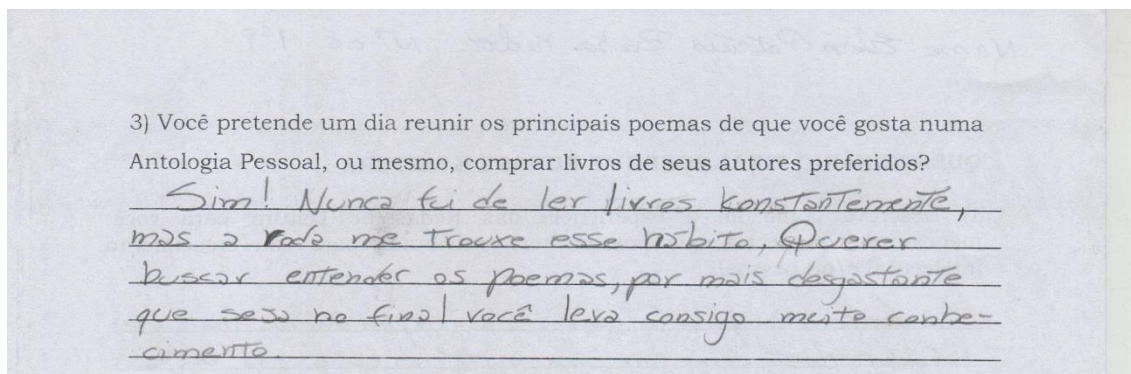 3) Você pretende um dia reunir os principais poemas de que você gosta numa
Antologia Pessoal, ou mesmo, comprar livros de seus autores preferidos?
Sim! Nunca fui de ler livros konstantemente,
mas a roda me trouxe esse hábito, Querer
buscar entender os poemas, por mais desgastante
que seja no final você leva consigo muito conhe-
cimento.